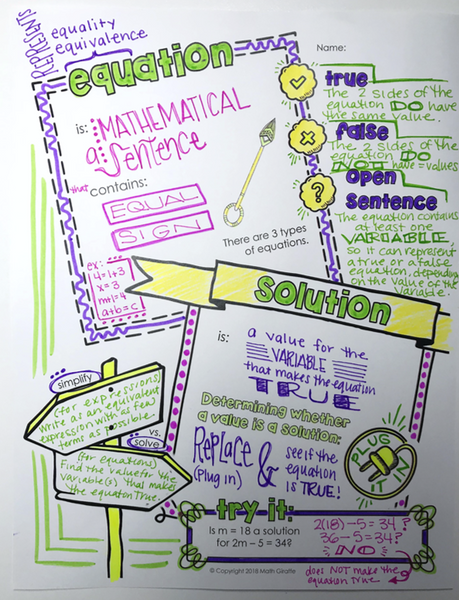 REPRESENTS
equality
equivalence
equation
is: a MATHEMATICAL
Sentence
that contains:
EQUAL
SIGN
ex:
4=1+3
x=3
m+1=4
a+b=c
There are 3 types
of equations.
Name:
true
The 2 sides of the
equation DO have
the same value.
false
The 2 sides of the
equation DO
NOT have = values
?
open
Sentence
The equation contains
at least one
VARIABLE,
so it can represent
a true or a false
equation, depending
on the value of the
variable.
solution
is:
a value for the
VARIABLE
that makes the equation
TRUE
Determining whether
a value is a solution:
REPLACE
(plug in)
&
see if the
equation
is TRUE!
PLUG
IT IN
simplify
(for expressions)
Write as an equivalent
expression with as few
terms as possible.
vs.
solve
(for equations)
Find the value for the
variable(s) that makes
the equation True.
try it:
Is m = 18 a solution
for 2m – 5 = 34?
2(18)-5=34?
36-5=34?
NO
does NOT make the
equation true
© Copyright 2018 Math Giraffe